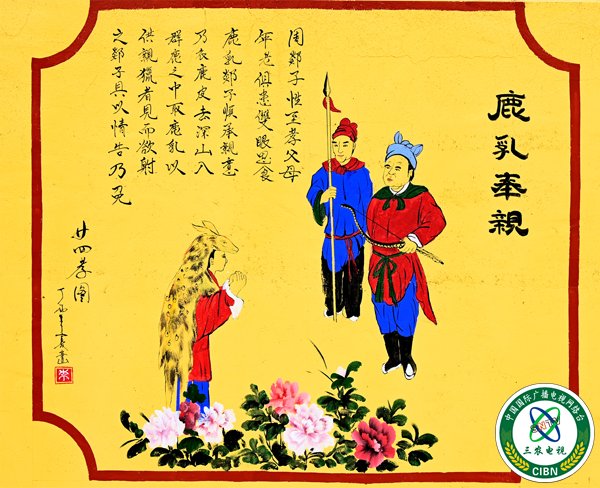 鹿乳奉親
周郯子性至孝父母
年老俱患雙眼思食
鹿乳郯子順承親意
乃衣鹿皮去深山入
群鹿之中取鹿乳以
供親獵者見而欲射
之郯子具以情告乃免
廿四孝圖
丁酉
中国国际广播电视网络台
三农电视
CIBN